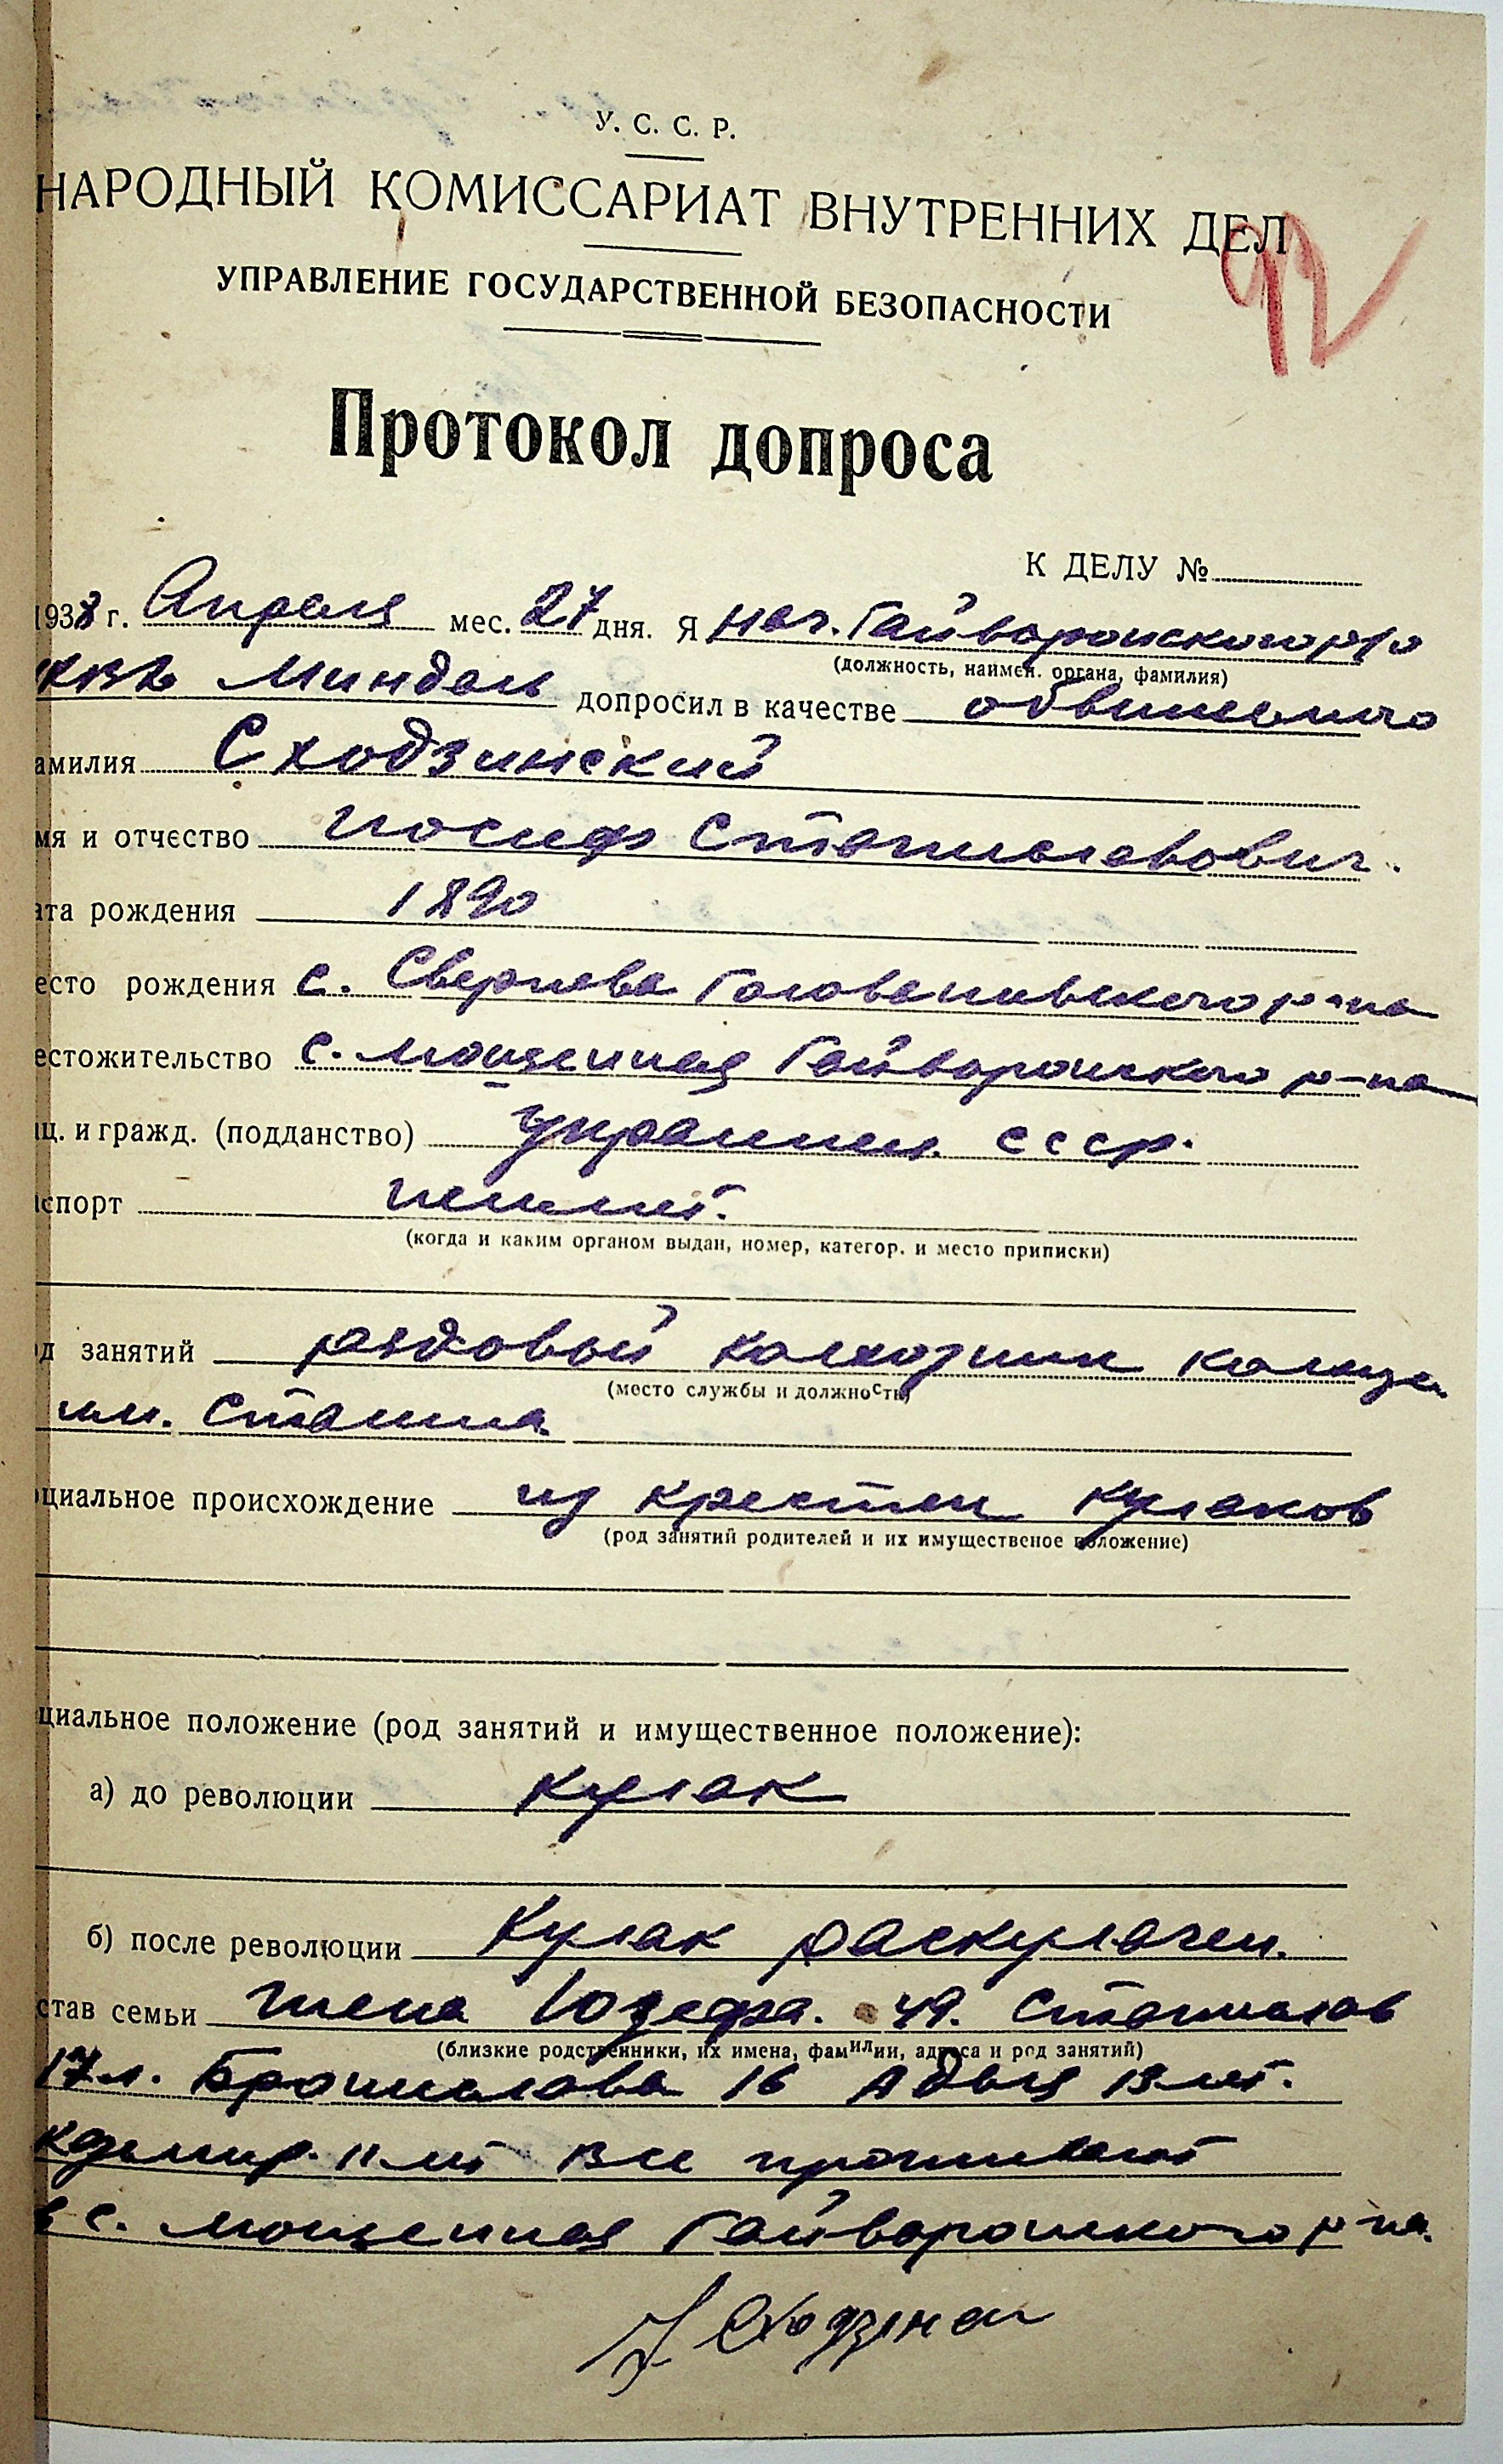 У. С. С. Р.
НАРОДНЫЙ КОМИССАРИАТ ВНУТРЕННИХ ДЕЛ
92
УПРАВЛЕНИЕ ГОСУДАРСТВЕННОЙ БЕЗОПАСНОСТИ
Протокол допроса
К ДЕЛУ №
1938 г. Апреля мес. 27 дня. Я Нач. Гайворонского р/о
(должность, наимен. органа, фамилия)
НКВД Миндель допросил в качестве обвиняемого
амилия Сходзинский
мя и отчество Иосиф Станиславович.
ата рождения 1890
есто рождения с. Свернева Голованивского р-на
естожительство с. Мощенная Гайворонского р-на
ац. и гражд. (подданство) украинец СССР.
аспорт неимеет.
(когда и каким органом выдан, номер, категор. и место приписки)
од занятий рядовой колхозник колхоза
(место службы и должность)
им. Сталина
оциальное происхождение из крестьян кулаков
(род занятий родителей и их имущественое положение)
циальное положение (род занятий и имущественное положение):
а) до революции кулак
б) после революции Кулак раскулачен.
став семьи жена Юзефа. 49. Станислав
(близкие родственники, их имена, фамилии, адреса и род занятий)
17 л. Бронислава 16 Адвия 13 лет.
11 лет Все проживают
в с. Мощенная Гайворонского р-на.
Сходзинский